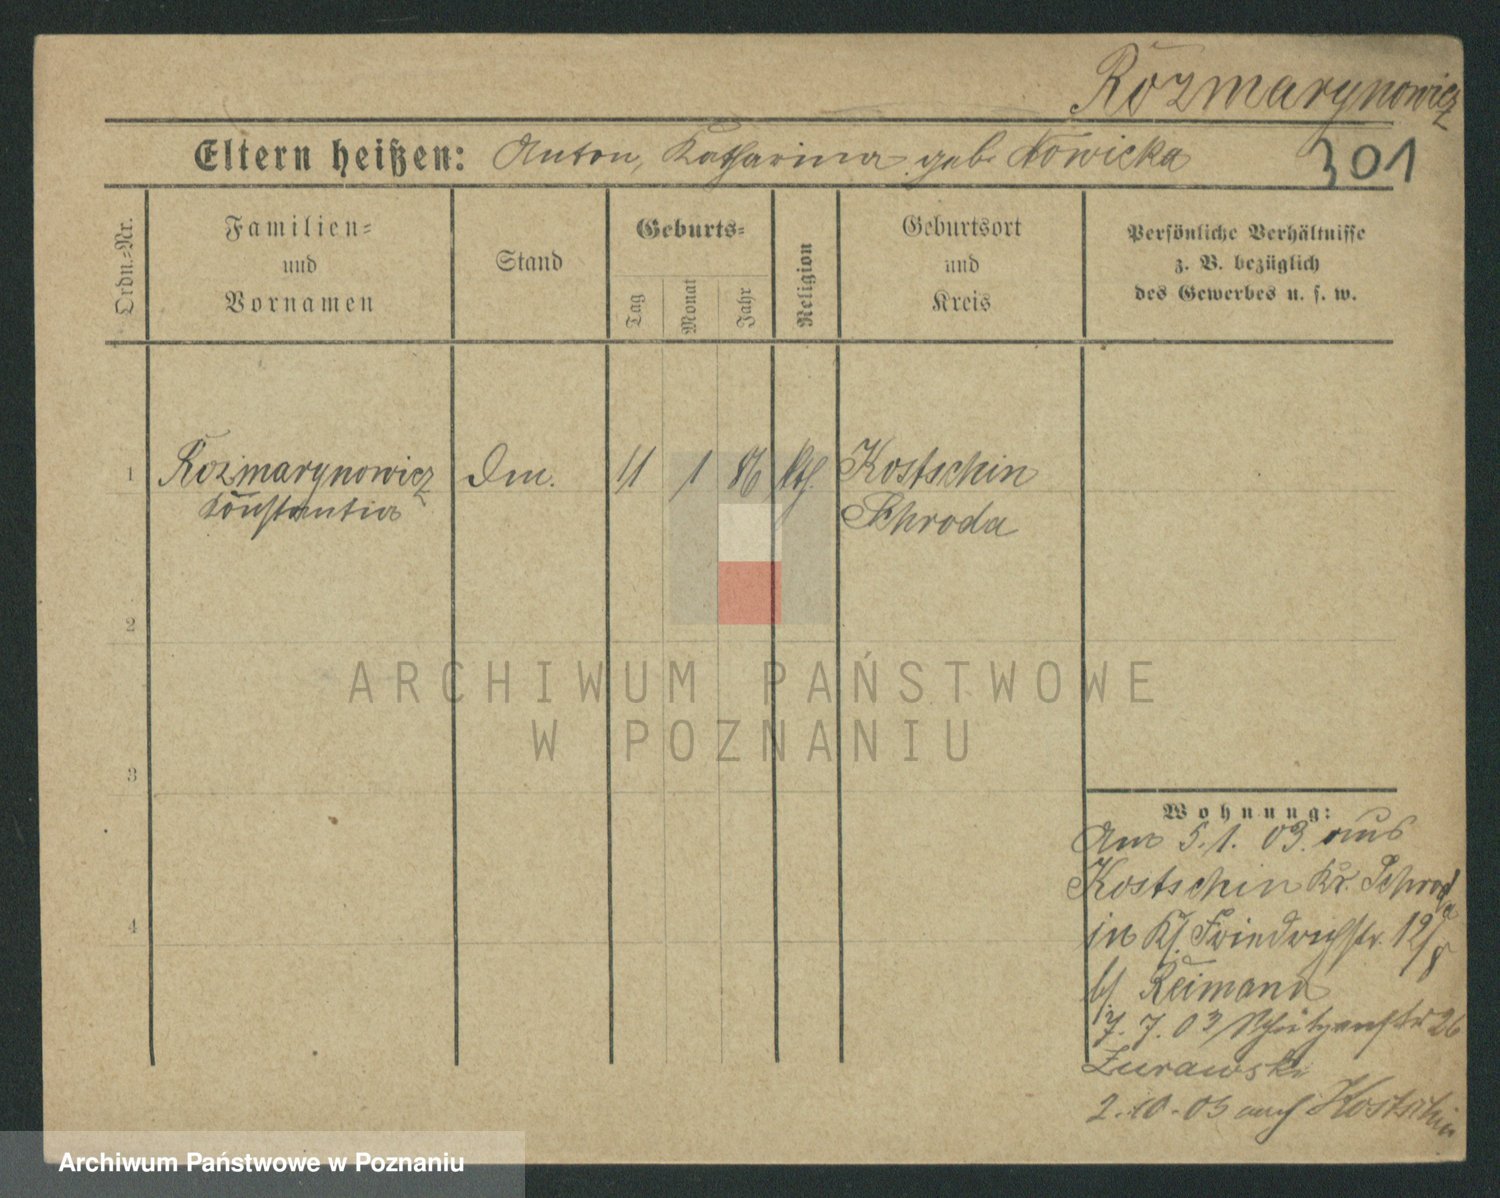 Rozmarynowicz
301
Eltern heißen: Anton, Katharina geb. Nowicka
Ordn.-Nr.
Familien-
und
Vornamen
Stand
Geburts-
Tag
Monat
Jahr
Religion
Geburtsort
und
Kreis
Persönliche Verhältnisse
z. B. bezüglich
des Gewerbes u. s. w.
1 Rozmarynowicz Dm. 11 1 86 kth. Kostschin
Konstantia Schroda
2
3
4
ARCHIWUM PAŃSTWOWE
W POZNANIU
Wohnung:
Am 5.1.03. aus
Kostschin Kr. Schroda
in Friedrichstr. 12/8
b/ Reimann
7.7.03 Schützenstr 26
Zurawski
2.10.03 auf Kostschin
Archiwum Państwowe w Poznaniu